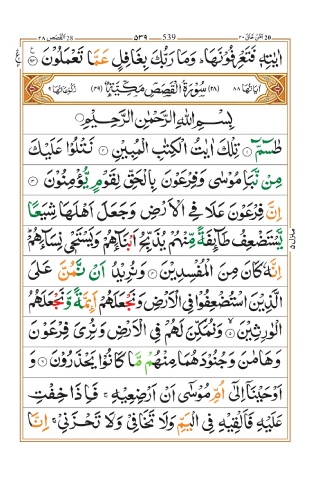 القصص ٢٨ 28 ٥٣٩ 539 امن خلق ٢٠ 20
اٰيٰتِهٖ فَتَعْرِفُوْنَهَا ؕ وَمَا رَبُّكَ بِغَافِلٍ عَمَّا تَعْمَلُوْنَ ۝٩٣
اٰيَاتُهَا ٨٨ (٢٨) سُوْرَةُ الْقَصَصِ مَكِّيَّةٌ (٤٩) رُكُوْعَاتُهَا ٩
بِسْمِ اللّٰهِ الرَّحْمٰنِ الرَّحِيْمِ
طٰسٓمّٓ ۝١ تِلْكَ اٰيٰتُ الْكِتٰبِ الْمُبِيْنِ ۝٢ نَتْلُوْا عَلَيْكَ
مِنْ نَّبَاِ مُوْسٰى وَفِرْعَوْنَ بِالْحَقِّ لِقَوْمٍ يُّؤْمِنُوْنَ ۝٣
اِنَّ فِرْعَوْنَ عَلَا فِى الْاَرْضِ وَجَعَلَ اَهْلَهَا شِيَعًا
يَّسْتَضْعِفُ طَآئِفَةً مِّنْهُمْ يُذَبِّحُ اَبْنَآءَهُمْ وَيَسْتَحْىٖ نِسَآءَهُمْ ؕ
اِنَّهٗ كَانَ مِنَ الْمُفْسِدِيْنَ ۝٤ وَنُرِيْدُ اَنْ نَّمُنَّ عَلَى
الَّذِيْنَ اسْتُضْعِفُوْا فِى الْاَرْضِ وَنَجْعَلَهُمْ اَئِمَّةً وَّنَجْعَلَهُمُ
الْوٰرِثِيْنَ ۝٥ وَنُمَكِّنَ لَهُمْ فِى الْاَرْضِ وَنُرِىَ فِرْعَوْنَ
وَهَامٰنَ وَجُنُوْدَهُمَا مِنْهُمْ مَّا كَانُوْا يَحْذَرُوْنَ ۝٦ وَ
اَوْحَيْنَاۤ اِلٰٓى اُمِّ مُوْسٰٓى اَنْ اَرْضِعِيْهِ ۚ فَاِذَا خِفْتِ
عَلَيْهِ فَاَلْقِيْهِ فِى الْيَمِّ وَلَا تَخَافِىْ وَلَا تَحْزَنِىْ ۚ اِنَّا